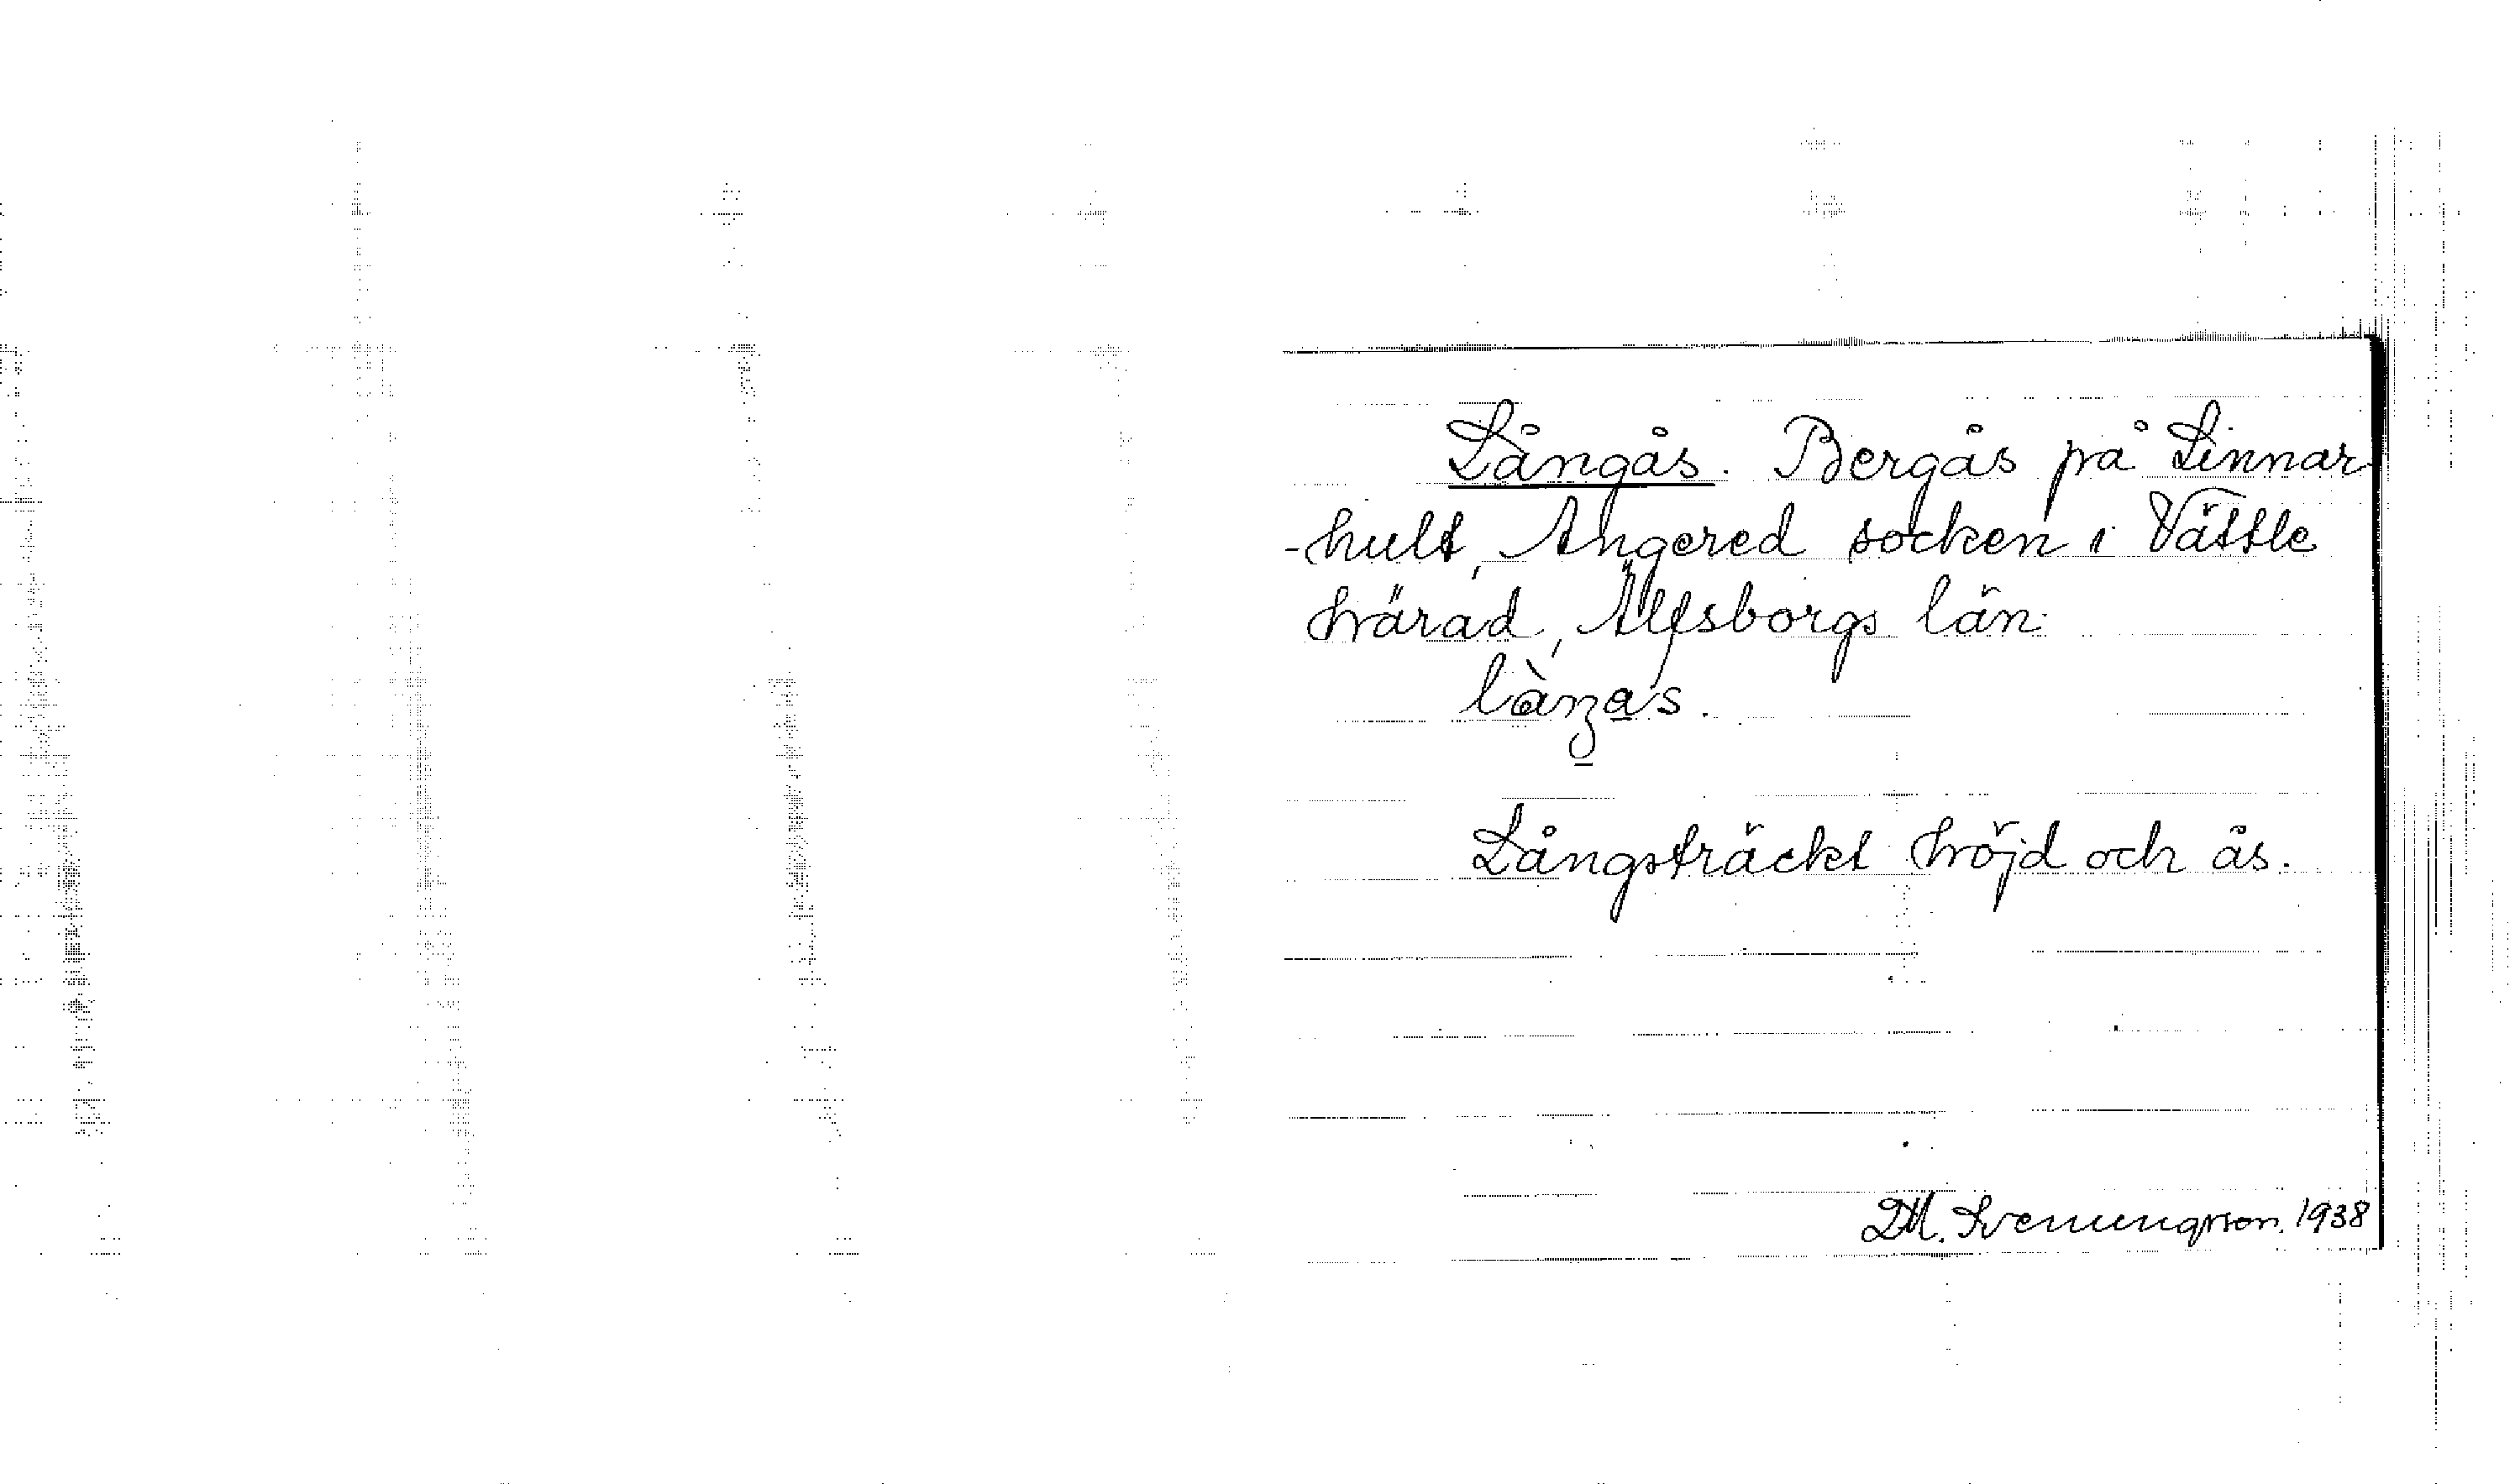 Långås. Bergås på Linnar
-hult, Angered socken i Vättle
härad, Älfsborgs län.
Långsträckt höjd och ås.
D.M. Svenungsson. 1938